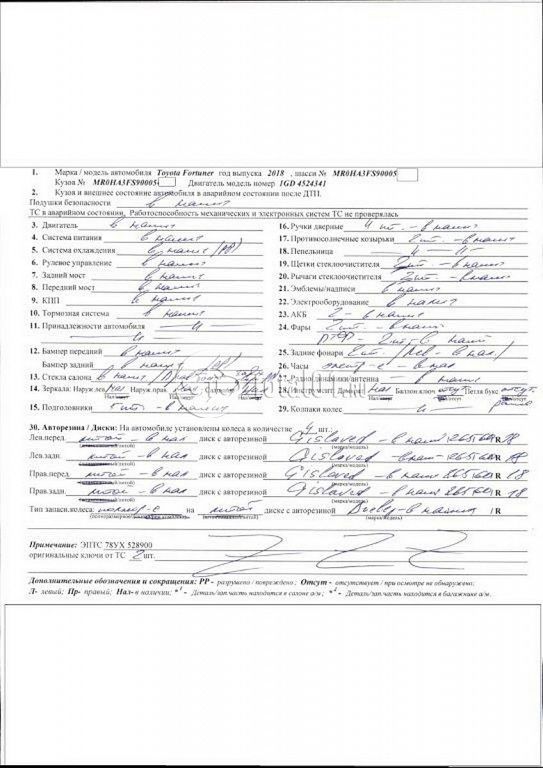 1. Марка / модель автомобиля Toyota Fortuner год выпуска 2018 , шасси № MR0HA3FS90005
Кузов № MR0HA3FS90005 Двигатель модель номер 1GD 4524341
2. Кузов и внешнее состояние автомобиля в аварийном состоянии после ДТП.
Подушки безопасности в налич
ТС в аварийном состоянии. Работоспособность механических и электронных систем ТС не проверялась
3. Двигатель в налич
4. Система питания в налич
5. Система охлаждения в налич /РР/
6. Рулевое управление в налич
7. Задний мост в налич
8. Передний мост в налич
9. КПП в налич
10. Тормозная система в налич
11. Принадлежности автомобиля
12. Бампер передний в налич
Бампер задний в нал /РР/
13. Стекла салона в налич
14. Зеркала: Наруж.лев. Нал Наруж.прав. Нал
15. Подголовники 5 шт. - в налич
16. Ручки дверные 4 шт. - в налич
17. Противосолнечные козырьки 2 шт. - в налич
18. Пепельница
19. Щетки стеклоочистителя 2 шт. - в налич
20. Рычаги стеклоочистителя 2 шт. - в налич
21. Эмблемы/надписи в налич
22. Электрооборудование в налич
23. АКБ 2 - в налич
24. Фары 2 шт. - в налич
ПТФ - 2 шт в налич
25. Задние фонари 2 шт / лев - в нал /
26. Часы - в нал
27. Радио динамики/антенна в налич
28. Инструмент: Домкрат Нал Баллон.ключ отсут. Петля букс отсут.
29. Колпаки колес
30. Авторезина / Диски: На автомобиле установлены колеса в количестве 4 шт.:
Лев.перед. китай - в нал диск с авторезиной Gislaved - в нал 265/60/R 18
(марка/модель)
Лев.задн. китай - в нал диск с авторезиной Gislaved - в нал 265/60/R 18
(марка/модель)
Прав.перед китай - в нал диск с авторезиной Gislaved - в нал 265/60/R 18
(марка/модель)
Прав.задн. китай - в нал диск с авторезиной Gislaved - в нал 265/60/R 18
(марка/модель)
Тип запасн.колеса: на китай диске с авторезиной в налич /R
(марка/модель)
Примечание: ЭПТС 78УХ 528900
оригинальные ключи от ТС 2 шт.
Дополнительные обозначения и сокращения: РР - разрушено / повреждено ; Отсут - отсутствует / при осмотре не обнаружено;
Л- левый; Пр- правый; Нал- в наличии; *¹ - Деталь/зап.часть находится в салоне а/м; *² - Деталь/зап.часть находится в багажнике а/м.